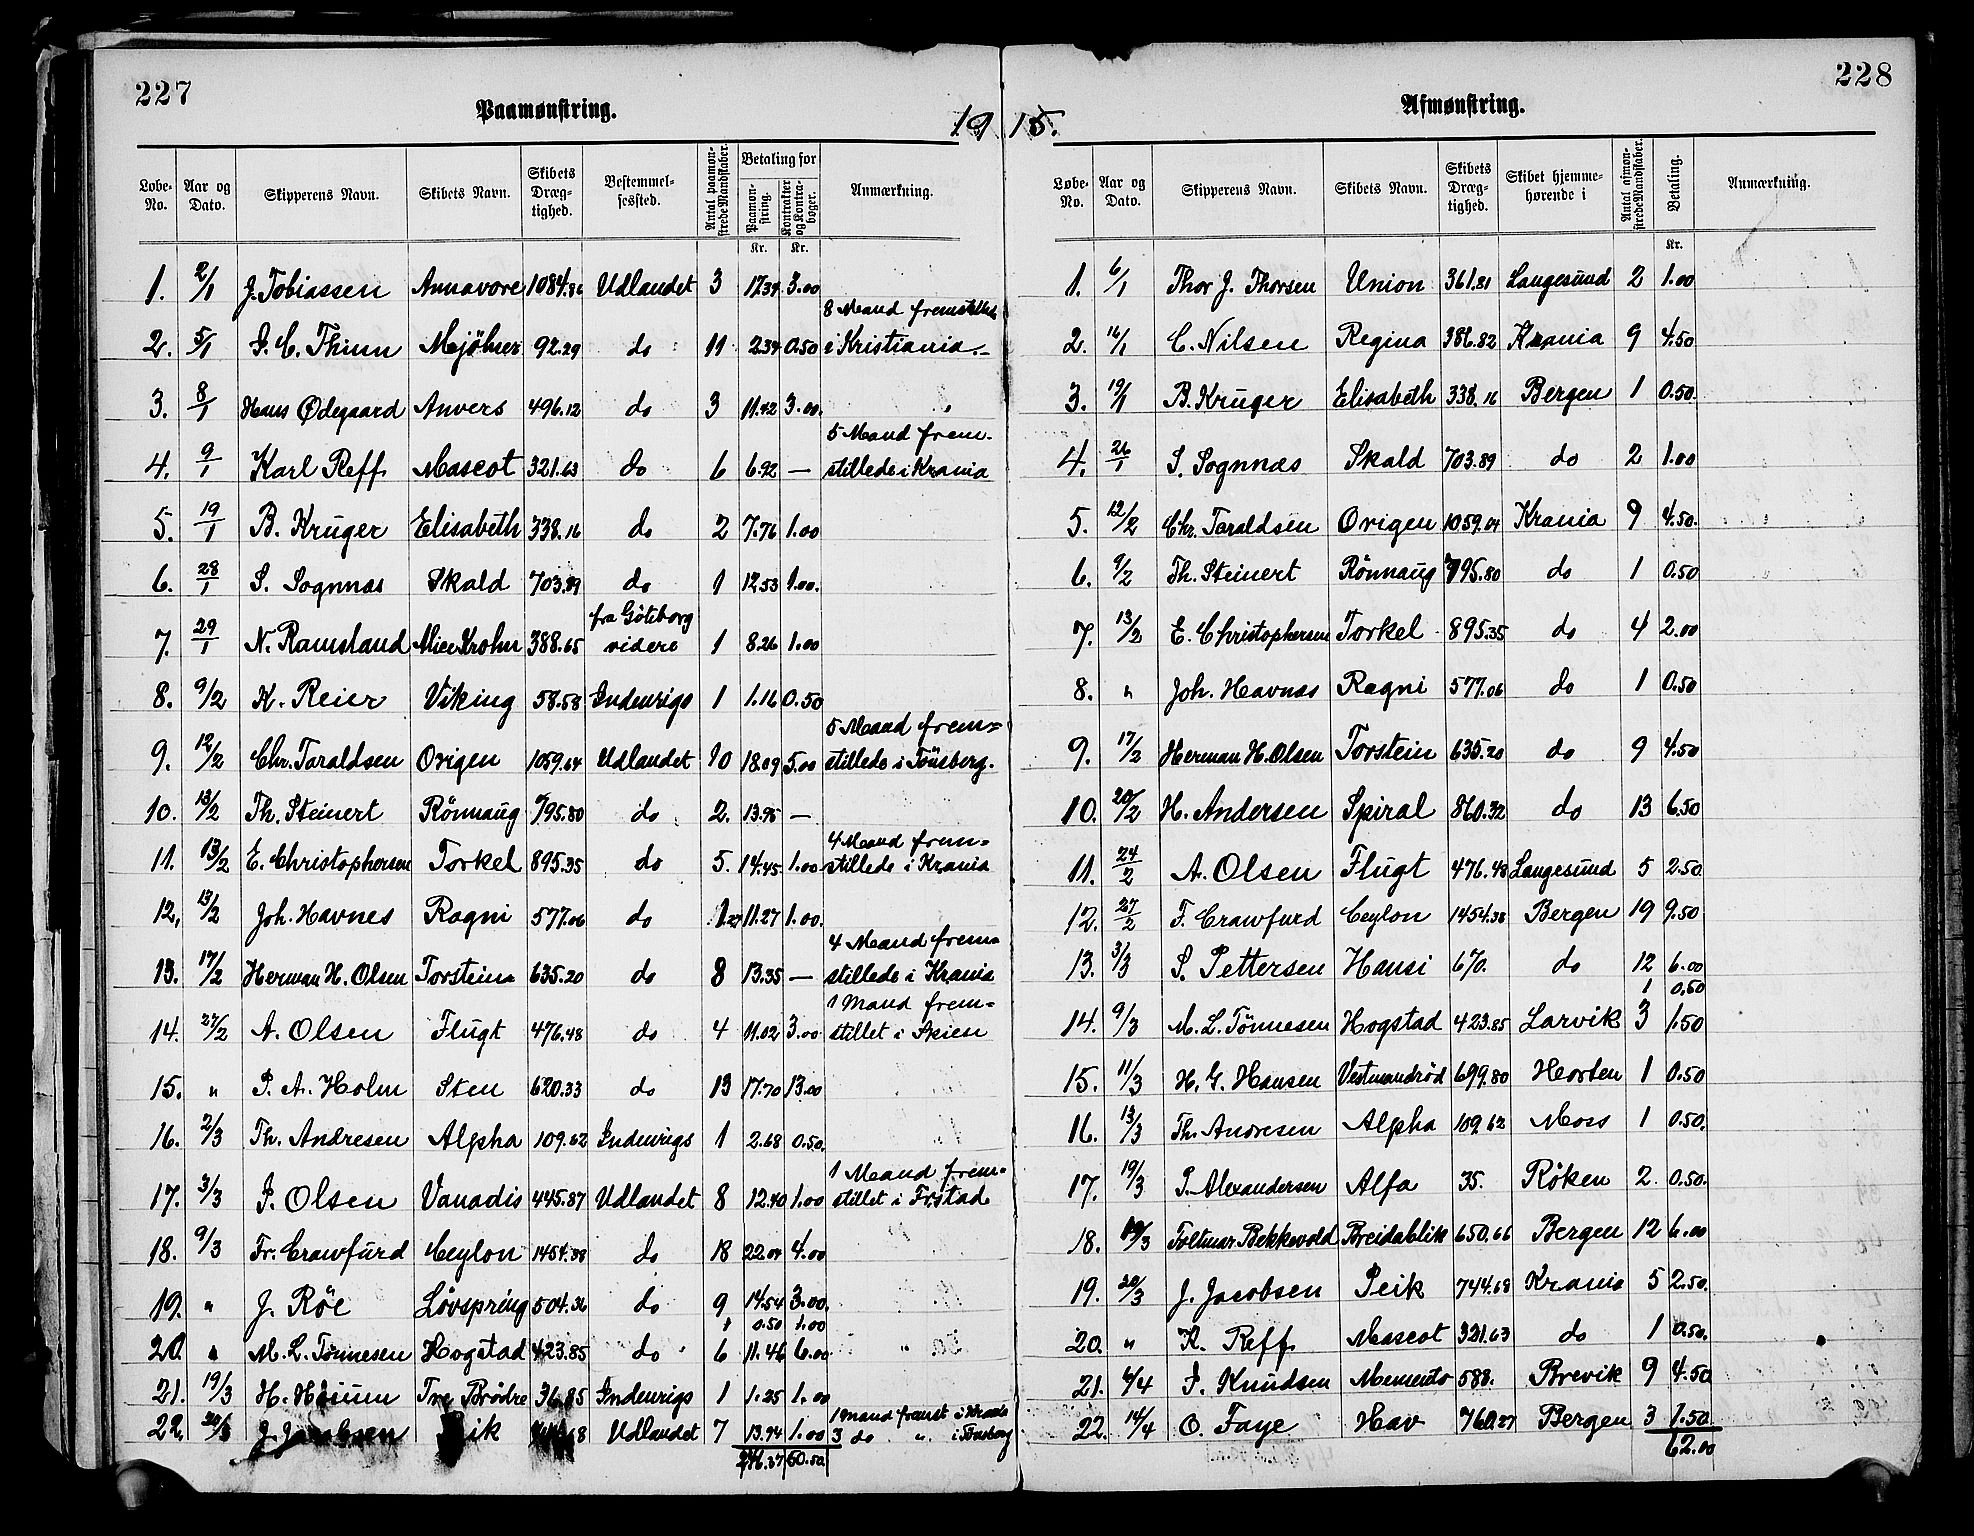 227
Paamønstring.
19
Løbe-No. Aar og Dato. Skipperens Navn. Skibets Navn. Skibets Dræg-tighed. Bestemmel-sessted. Antal paamøn-strede Mandskaber. Betaling for Paamøn-string. Kontrakter og Kontra-bøger. Anmærkning.
Kr. Kr.
1. 2/1 J. Tobiassen Annavore 1084.86 Udlandet 3 17.34 3.00
8 Mand fremstillede
2. 5/1 S. C. Thunn Mjölner 92.29 do 11 2.34 0.50 i Kristiania.
3. 8/1 Hans Ødegaard Anvers 496.12 do 3 11.42 3.00.
5 Mand frem-
4. 9/1 Karl Reff Mascot 321.63 do 6 6.92 — stillede i Krania
5. 19/1 B. Krüger Elisabeth 338.16 do 2 7.76 1.00
6. 28/1 S. Sognnæs Skald 703.89 do 1 12.53 1.00.
fra Göteborg
7. 29/1 N. Ramsland Alice Krohn 388.65 videre 1 8.26 1.00
8. 9/2 K. Reier Viking 58.58 Indenrigs 1 1.16 0.50
5 Mand frem=
9. 12/2 Chr. Taraldsen Origen 1059.64 Udlandet 10 18.09 5.00 stillede i Tönsberg.
10. 13/2 Th. Steinert Rönnaug 795.80 do 2. 13.95 —
4 Mand frem=
11. 13/2 E. Christophersen Torkel 895.35 do 5. 14.45 1.00 stillede i Krania
12. 13/2 Joh. Havnes Ragni 577.06 do 1 11.27 1.00.
4 Mand frem=
13. 17/2 Herman H. Olsen Torstein 635.20 do 8 13.35 — stillede i Krania
1 Mand frem=
14. 27/2 A. Olsen Flugt 476.48 do 4 11.02 3.00 stillet i Skien
15. " P. A. Holm Sten 620.33 do 13 17.70 13.00
16. 2/3 Th. Andresen Alpha 109.62 Indenrigs 1 2.68 0.50.
1 Mand frem=
17. 3/3 P. Olsen Vanadis 445.87 Udlandet 8 12.40 1.00 stillet i Frstad
18. 9/3 Fr. Crawfurd Ceylon 1454.38 do 18 22.04 4.00
19. " J. Röe Lövspring 504.36 do 9 14.54 3.00.
1 0.50 1.00
20. " M. L. Tönnesen Hogstad 423.85 do 6 11.46 6.00
21. 19/3 H. Tre Brödre 36.85 Indenrigs 1 1.25 1.00
1 Mand fremst i Krania
22. J. Jacobsen Udlandet 7 13.94 1.00 3 do " i Tönsberg
246.37 50.50
228
Afmønstring.
15.
Løbe-No. Aar og Dato. Skipperens Navn. Skibets Navn. Skibets Dræg-tighed. Skibet hjemme-hørende i Antal afmøn-strede Mandskaber. Betaling. Anmærkning.
Kr.
1. 6/1 Thor J. Thorsen Union 361.81 Langesund 2 1.00
2. 16/1 C. Nilsen Regina 386.82 Krania 9 4.50
3. 19/1 B. Krüger Elisabeth 338.16 Bergen 1 0.50.
4. 26/1 S. Sognnæs Skald 703.89 do 2 1.00
5. 12/2 Chr. Taraldsen Origen 1059.64 Krania 9 4.50.
6. 9/2 Th. Steinert Rönnaug 795.80 do 1 0.50
7. 13/2 E. Christophersen Torkel 895.35 do 4 2.00
8. " Joh. Havnæs Ragni 577.06 do 1 0.50
9. 17/2 Herman H. Olsen Torstein 635.20 do 9 4.50
10. 20/2 H. Andersen Spiral 860.32 do 13 6.50
11. 24/2 A. Olsen Flugt 476.48 Langesund 5 2.50
12. 27/2 F. Crawfurd Ceylon 1454.38 Bergen 19 9.50
13. 3/3 S. Pettersen Hansi 670. do 12 6.00
1 0.50
14. 9/3 M. L. Tönnesen Hogstad 423.85 Larvik 3 1.50
15. 11/3 H. G. Hansen Vestmandrød 699.80 Horten 1 0.50
16. 13/3 Th. Andresen Alpha 109.62 Moss 1 0.50.
17. 19/3 P. Alexandersen Alfa 35. Røken 2. 0.50.
18. 19/3 Folkmar Bekkevold Breidablik 650.66 Bergen 12 6.00
19. 20/3 J. Jacobsen Peik 744.68 Krania 5 2.50.
20. " K. Reff Mascot 321.63 do 1 0.50.
21. 6/4 P. Knudsen Memento 588. Brevik 9 4.50
22. 14/4 O. Faye Hav 760.27 Bergen 3 1.50
62.00